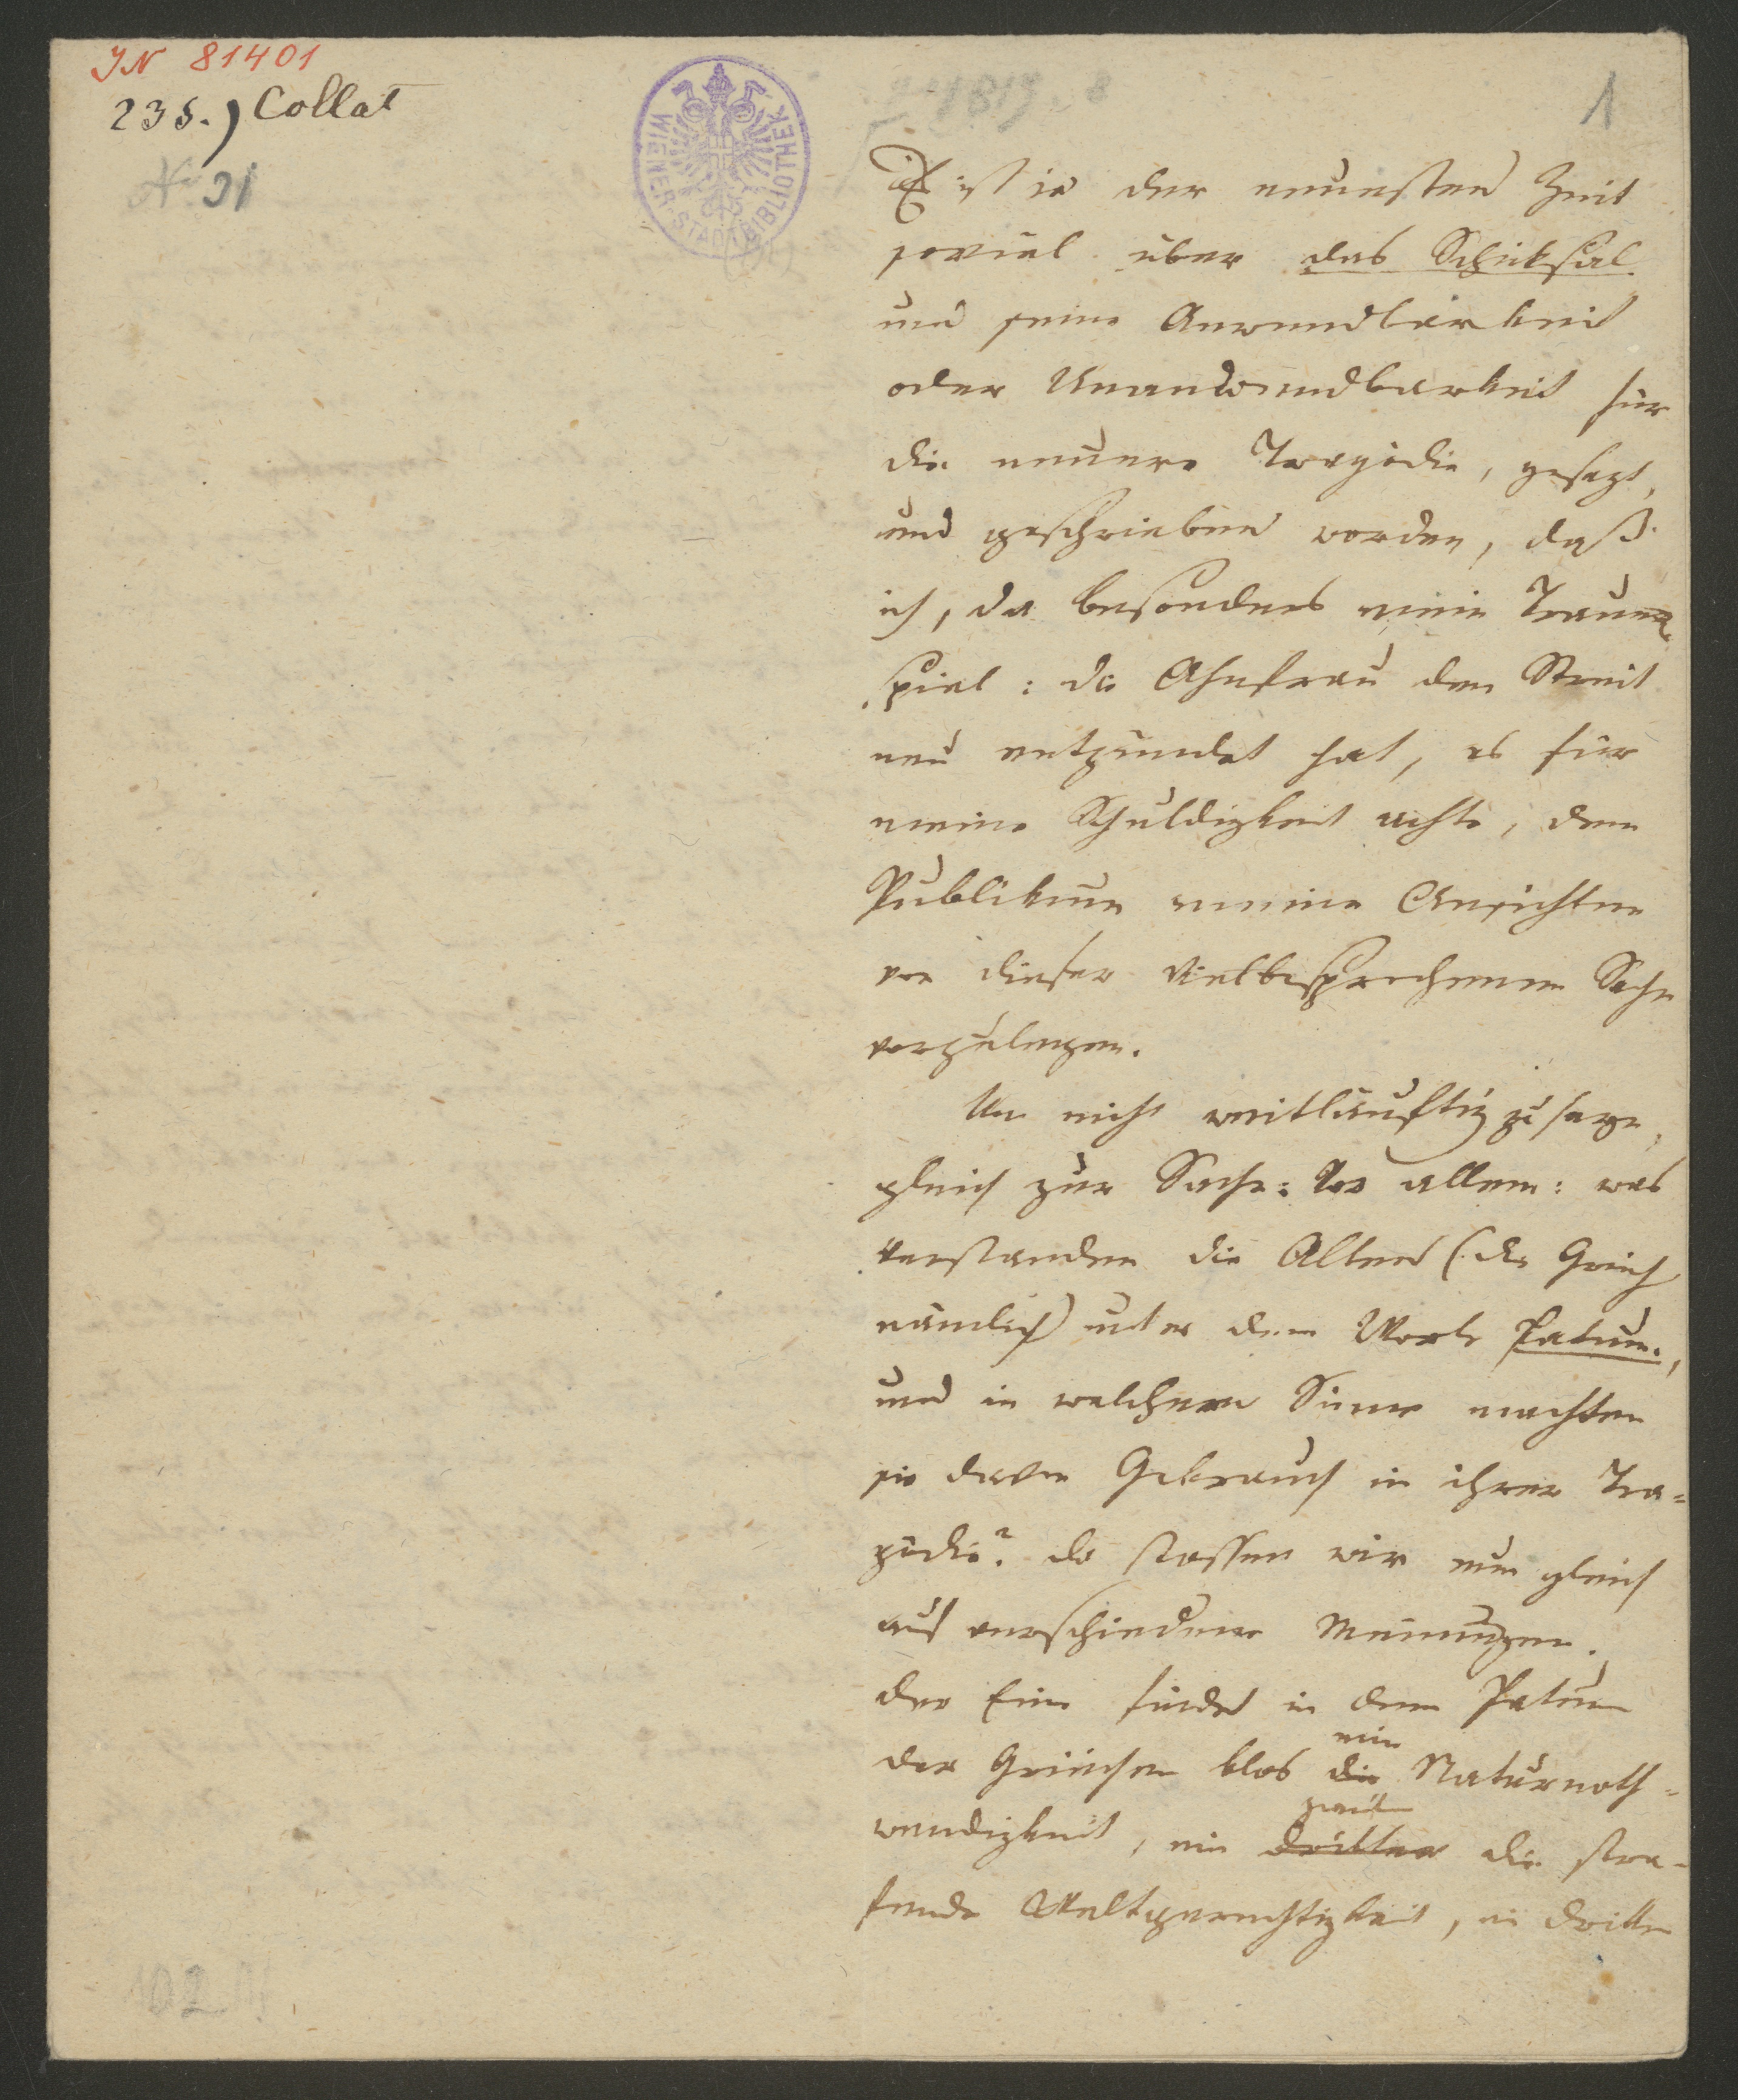 JN 81401
235.) Collat
N. 31
WIENER STADTBIBLIOTHEK
1819
1
Es ist in der neuesten Zeit
soviel über das Schiksal
und seine Anwendbarkeit
oder Unanwendbarkeit für
die neuere Tragödie, gesagt,
und geschrieben worden, daß
ich, da besonders mein Trauer-
spiel: die Ahnfrau den Streit
neu entzündet hat, es für
meine Schuldigkeit achte, dem
Publikum meine Ansichten
von dieser vielbesprochenen Sache
vorzulegen.
Um nicht weitläuftig zu seyn,
gleich zur Sache: Vor allem: was
verstanden die Alten (die Griech
nämlich) unter dem Worte Fatum,
und in welchem Sinne machten
sie davon Gebrauch in ihrer Tra=
gödie? da stossen wir nun gleich
auf verschiedene Meinungen.
der Eine findet in dem Fatum
ein
der Griechen blos die Naturnoth=
zweiter
wendigkeit, ein dritter die stra-
fende Weltgerechtigkeit, ein dritter
102